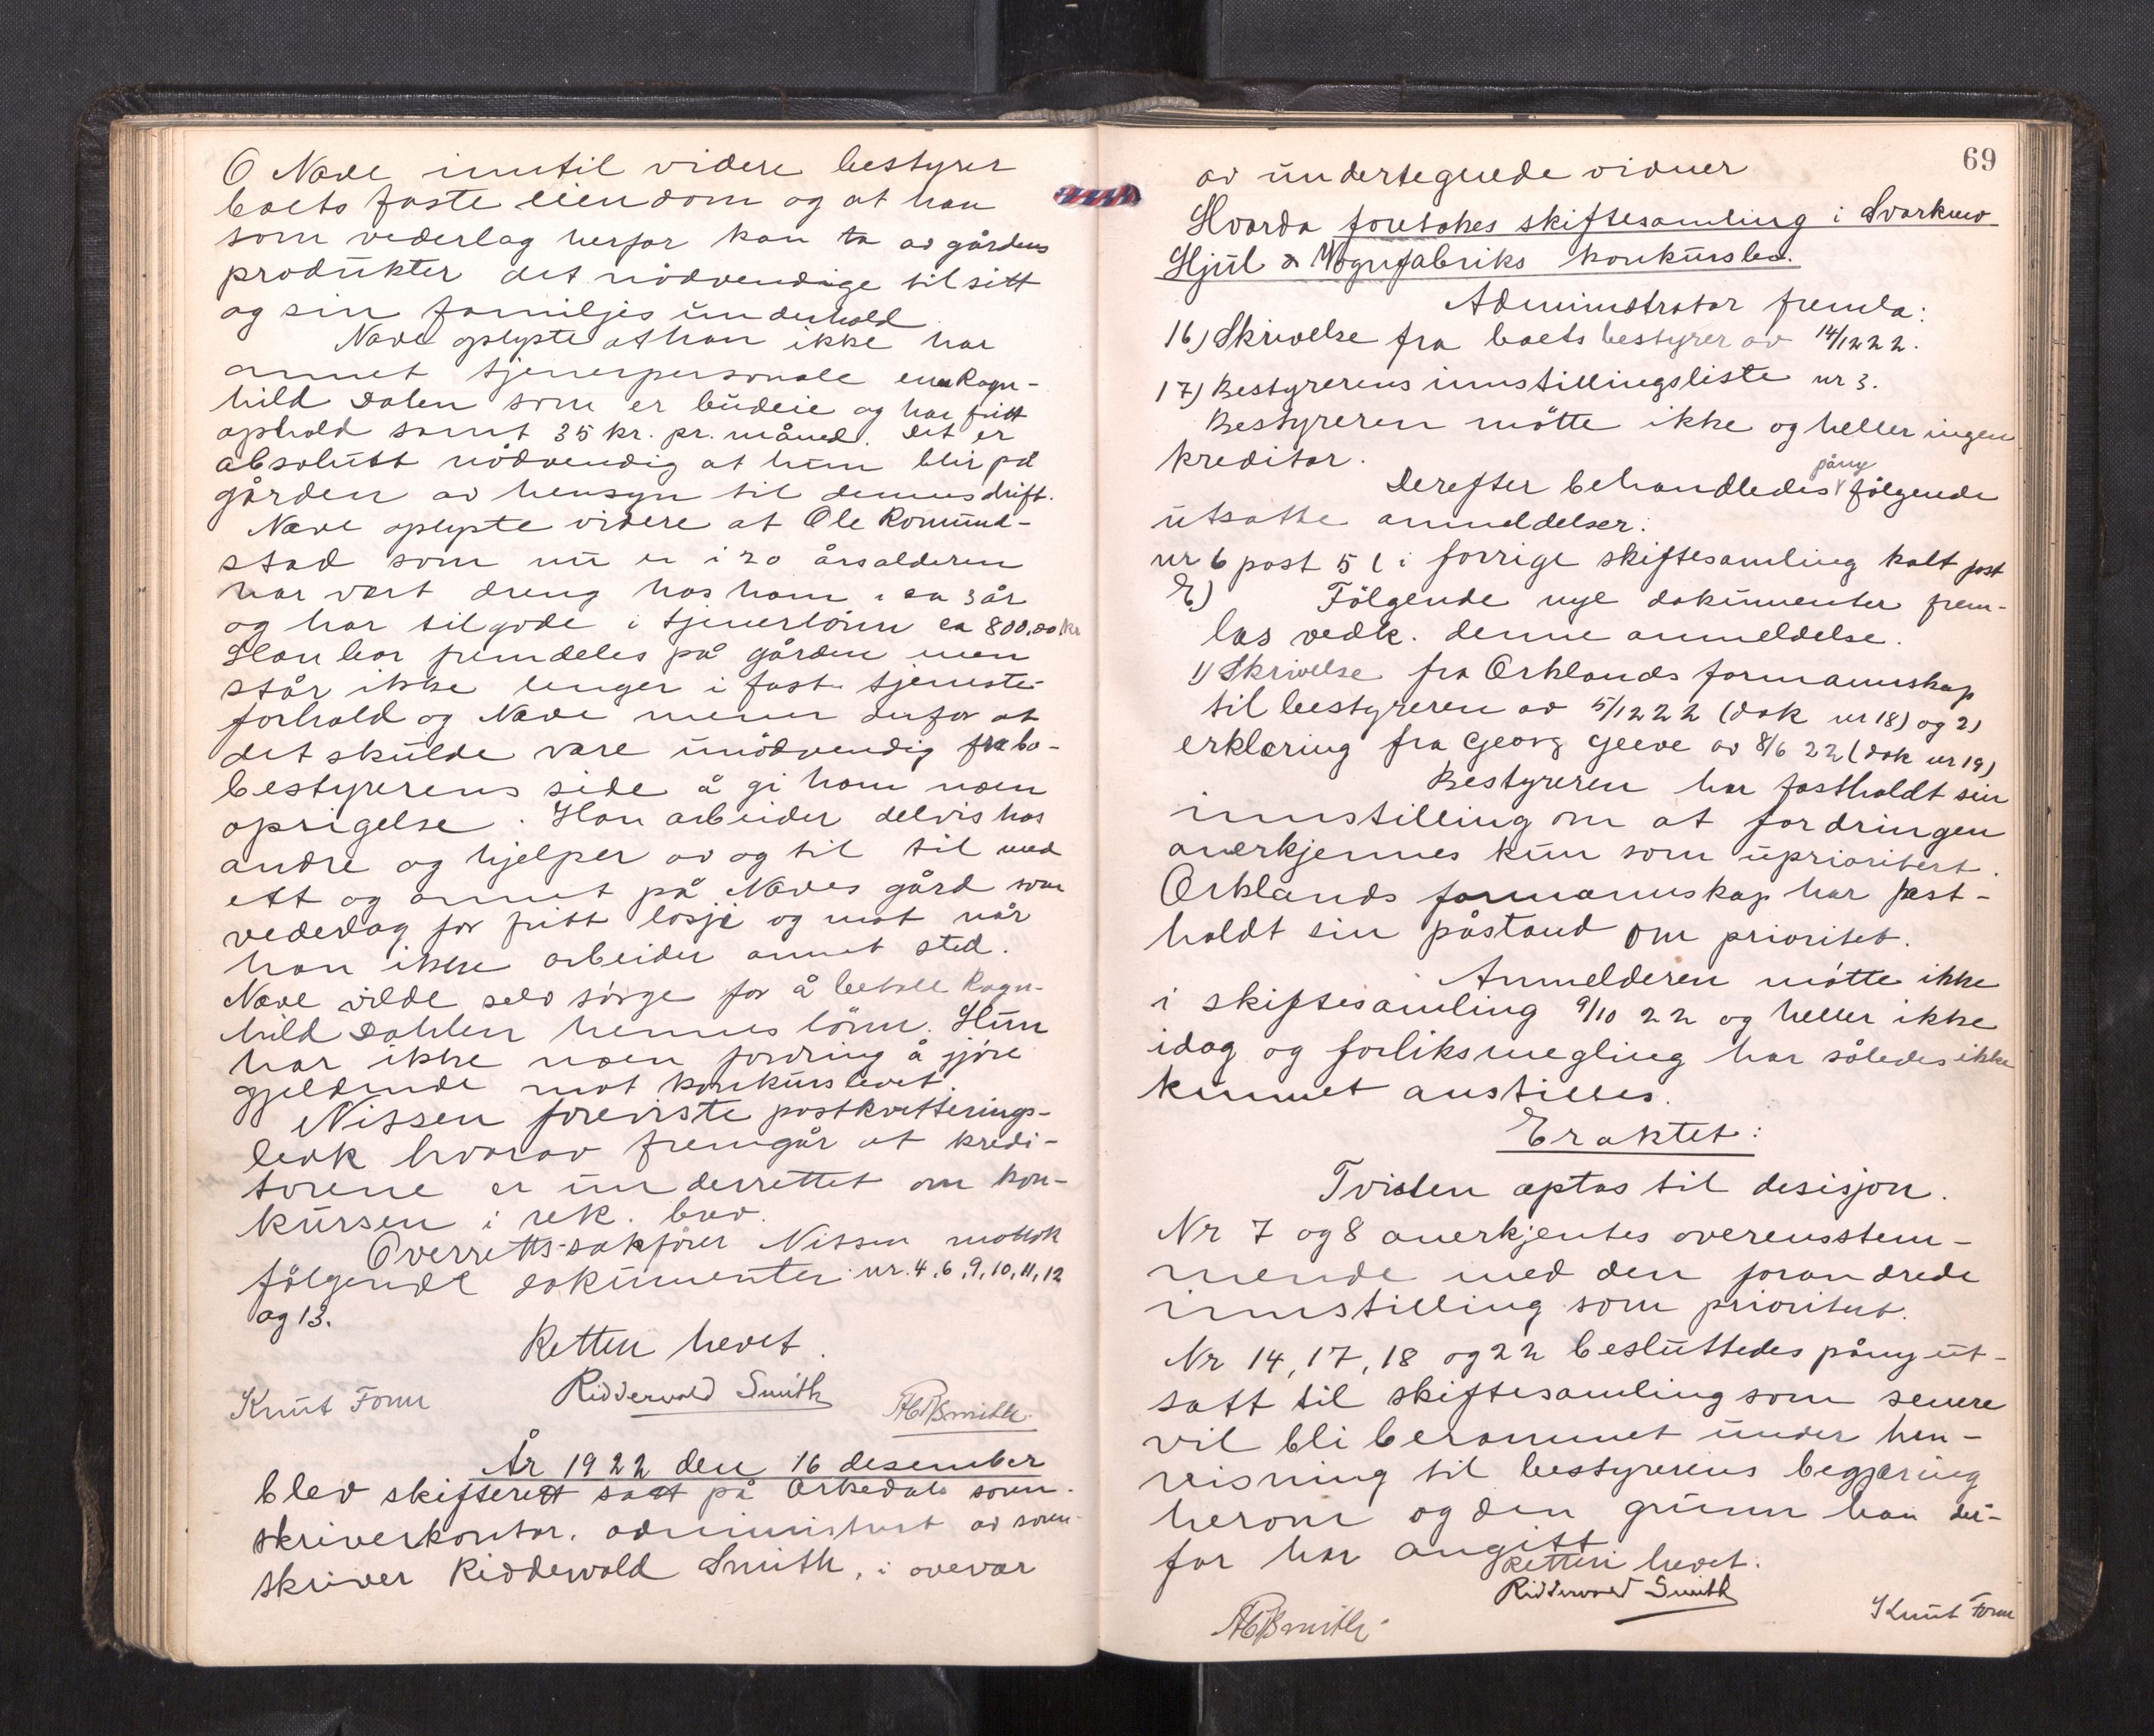 O Nave inntil videre bestyrer
boets faste eiendom og at han
som vederlag herfor kan ta av gårdens
produkter det nödvendige til sitt
og sin familjes underhold
Nave oplyste at han ikke har
annet tjenerpersonale enn Ragn-
hild Dalen som er budeie og har fritt
ophold samt 35 kr. pr. måned. Det er
absolutt nödvendig at hun blir på
gården av hensyn til dennes drift.
Nave oplyste videre at Ole Romund-
stad som nu er i 20 årsalderen
har vært dreng hos ham i ca 3 år
og har tilgode i tjenerlönn ca 800,00 kr
Han bor fremdeles på gården men
står ikke lenger i fast tjeneste-
forhold og Nave mener derfor at
det skulde være unödvendig fra bo-
bestyrerens side å gi ham noen
opsigelse. Han arbeider delvis hos
andre og hjelper av og til til med
ett og annet på Naves gård som
vederlag for fritt losji og mat når
han ikke arbeider annet sted.
Nave vilde selv sörge for å betale Ragn-
hild Dahlen hennes lönn. Hun
har ikke noen fordring å gjöre
gjeldende mot konkursboet.
Nissen foreviste postkvitterings-
bok hvorav fremgår at kredi-
torene er underrettet om kon-
kursen i rek. brev.
Overrettssakförer Nissen mottok
fölgende dokumenter nr. 4, 6, 9, 10, 11, 12
og 13.
Retten hevet.
Knut Forn Ridderwold Smith
År 1922 den 16 desember
blev skifterett satt på Orkedals soren-
skriverkontor, administrert av soren-
skriver Ridderwold Smith, i overvær
69
av undertegnede vidner
Hvorda foretokes skiftesamling i Svorkmo
Hjul & Vognfabriks konkursbo.
Administrator fremla:
16) Skrivelse fra boets bestyrer av 14/12 22.
17) Bestyrerens innstillingsliste nr 3.
Bestyreren mötte ikke og heller ingen
kreditor.
påny
Derefter behandledes fölgende
utsatte anmeldelser:
nr 6 post 5 (i forrige skiftesamling kalt post
E) Fölgende nye dokumenter frem-
las vedk. denne anmeldelse.
1) Skrivelse fra Orklands formannskap
til bestyreren av 5/12 22 (dok nr 18) og 2)
erklæring fra Georg Geeve av 8/6 22 (dok nr 19)
Bestyreren har fastholdt sin
innstilling om at fordringen
anerkjennes kun som uprioritert.
Orklands formannskap har fast-
holdt sin påstand om prioritet.
Anmelderen mötte ikke
i skiftesamling 9/10 22 og heller ikke
idag og forliksmegling har således ikke
kunnet anstilles.
Eraktet:
Tvisten optas til desisjon.
Nr 7 og 8 anerkjentes overensstem-
mende med den forandrede
innstilling som prioritert.
Nr 14, 17, 18 og 22 besluttedes påny ut-
satt til skiftesamling som senere
vil bli berammet under hen-
visning til bestyrerens begjæring
herom og den grunn han der-
for har angitt
Retten hevet.
Ridderwold Smith
Knut Forn